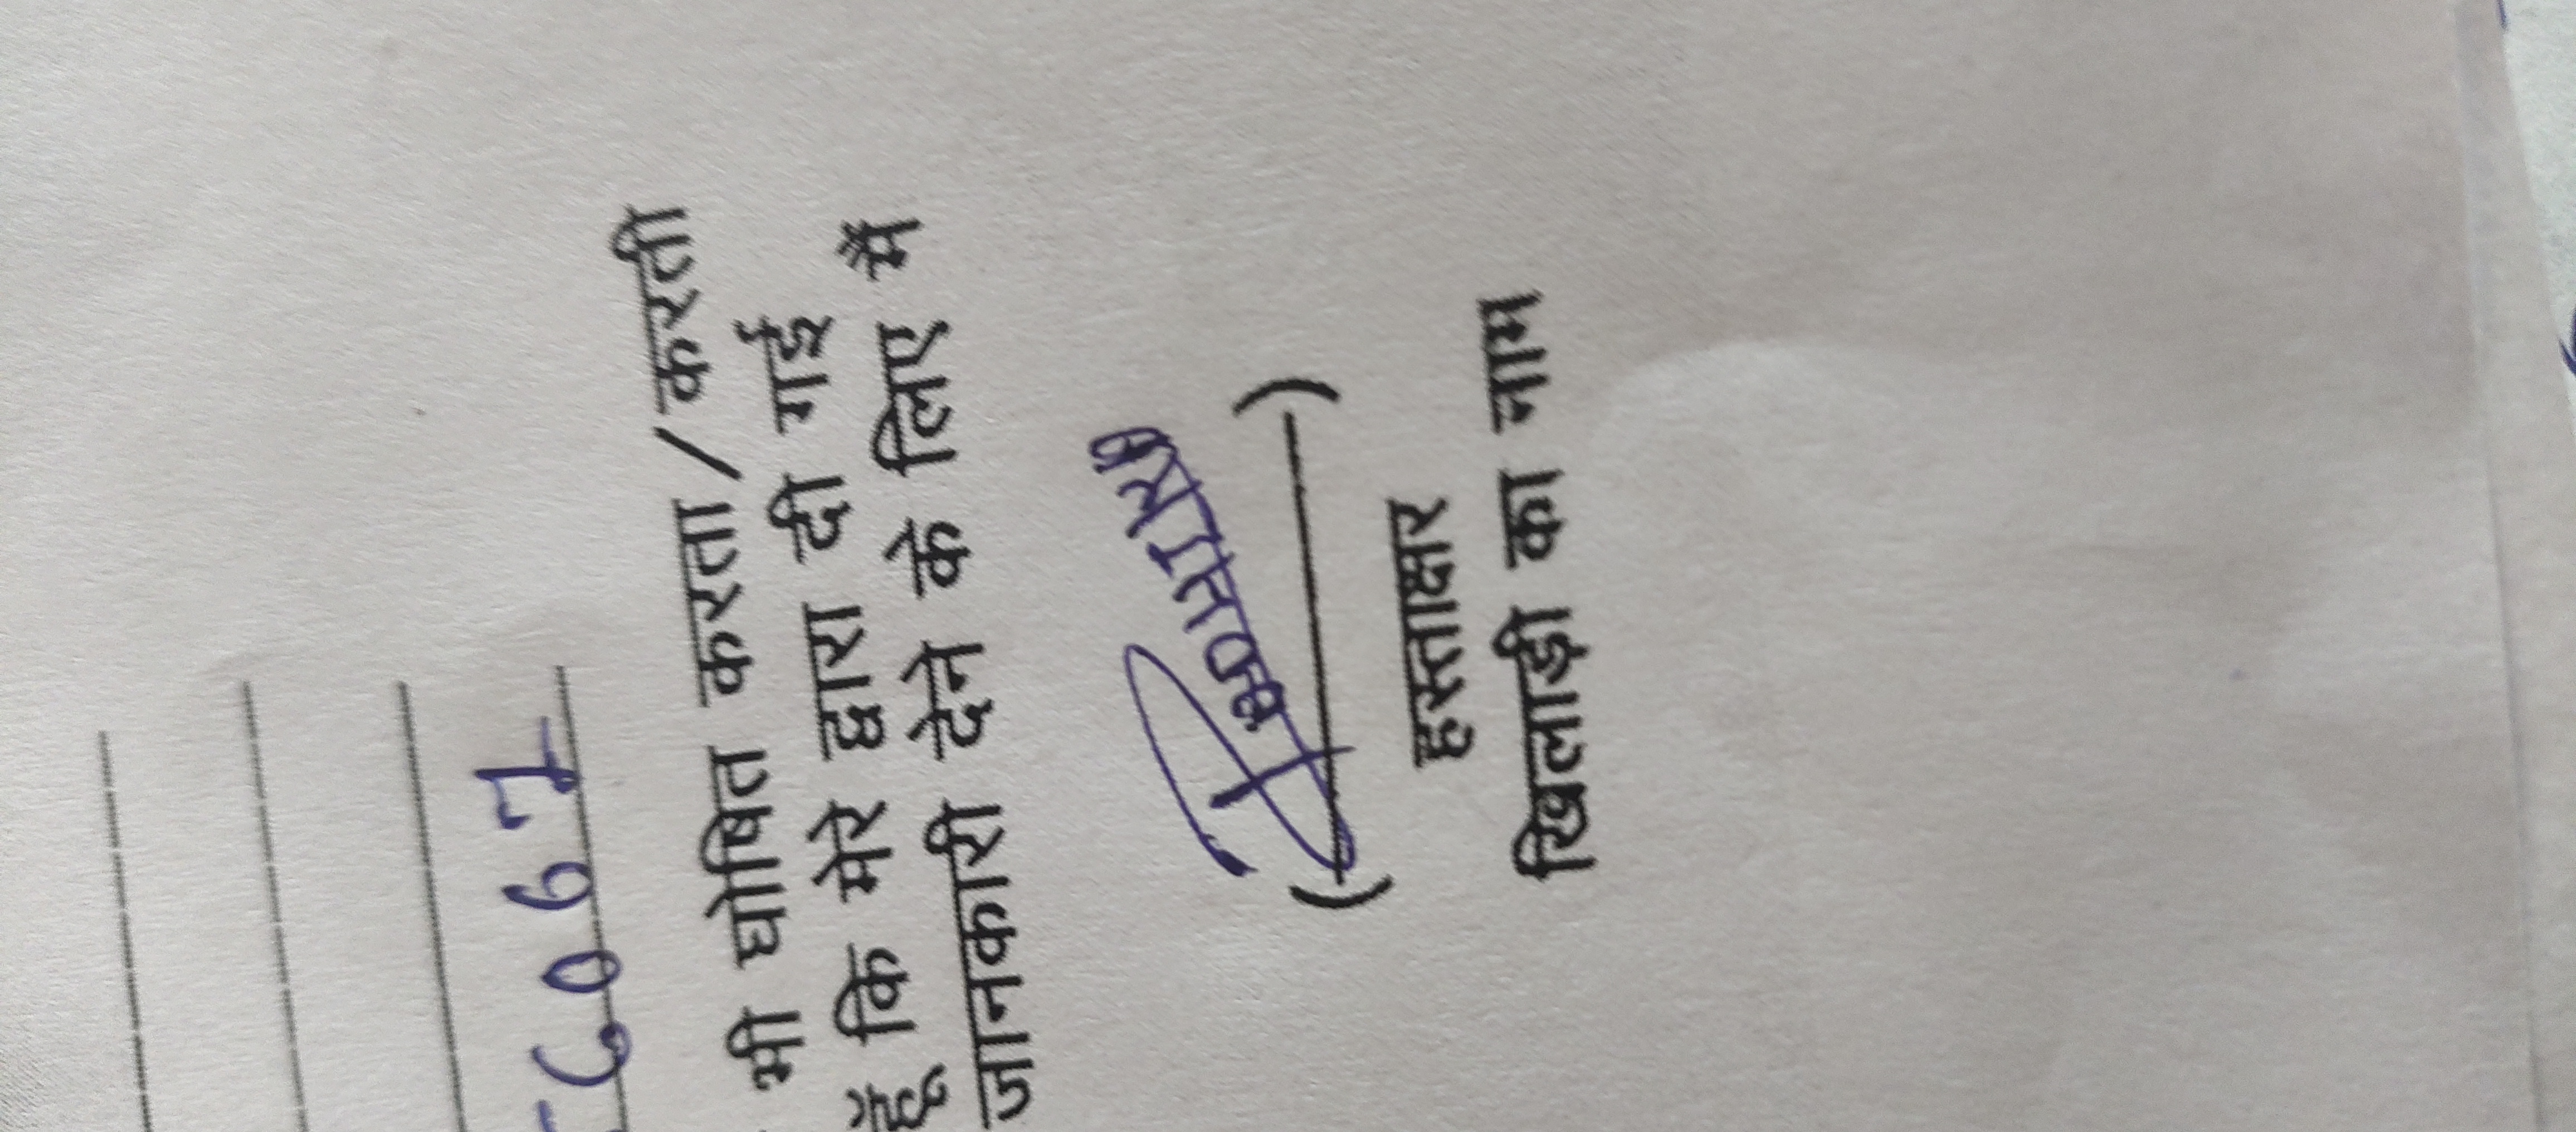 भी घोषित करता/करती
हूँ कि मेरे द्वारा दी गई
जानकारी देने के लिए मैं
हस्ताक्षर
खिलाड़ी का नाम